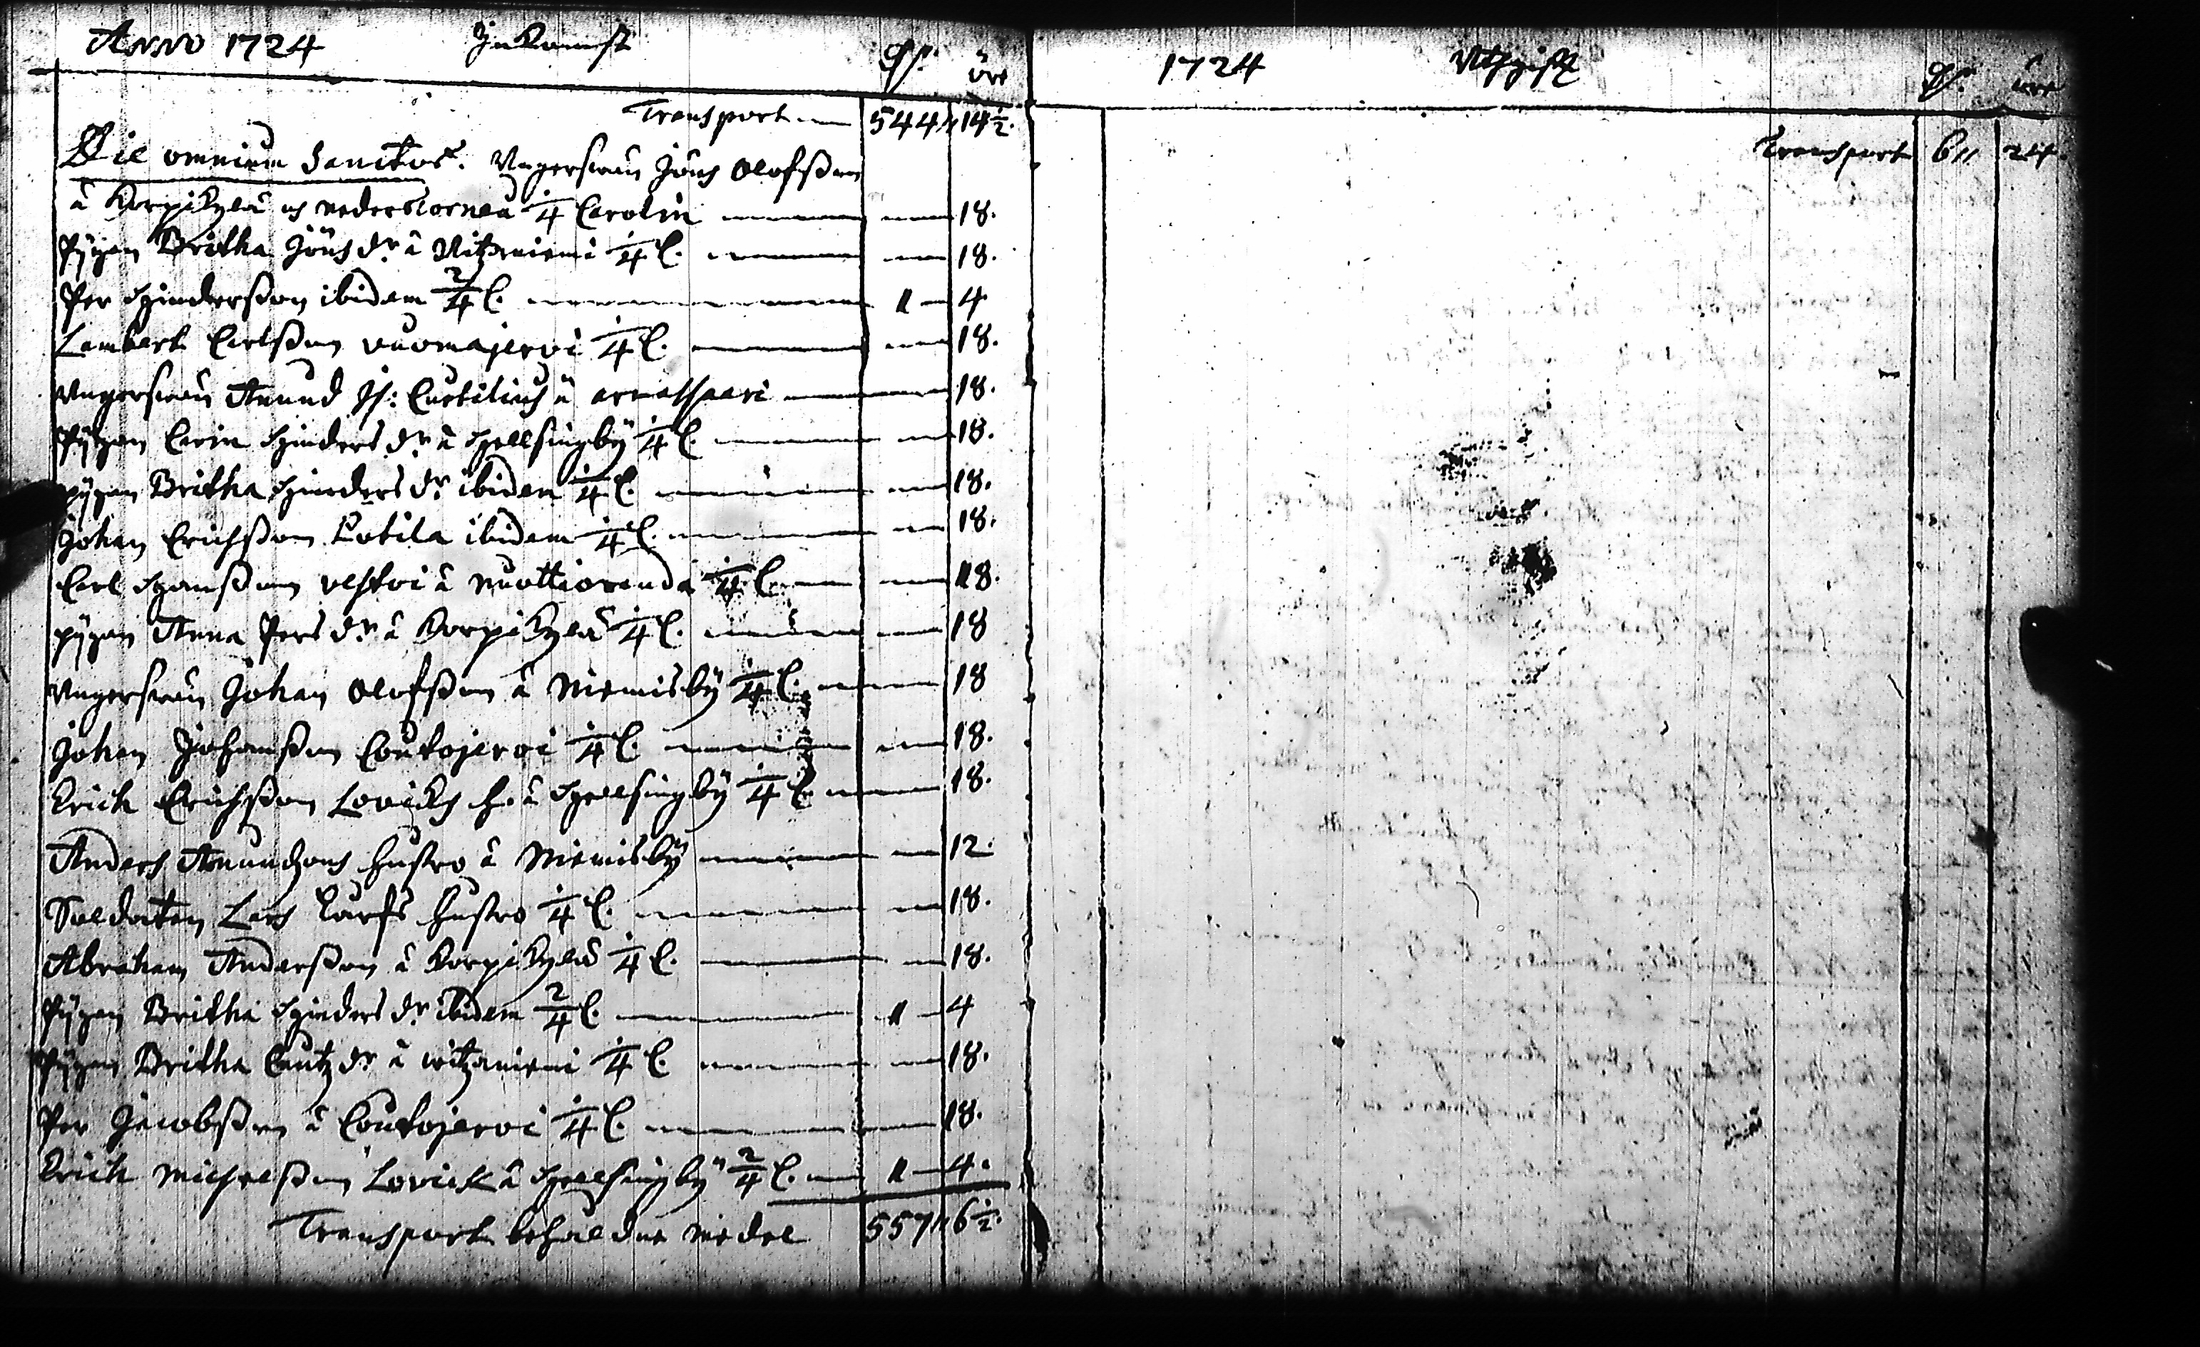 Anno 1724 Inkomst Dr: öre
Transport — 544 〃 14 1/2.
Die omnium Sanctor. Ungersvän Jöns Olofsson
å Korpikylä uj nedertorneå 1/4 Carolin — 18.
Pijgan Britha Jönsdr. å Vitzaniemi 1/4 C. — 18.
Per Hindersson ibidem 2/4 C. — 1 — 4
Lambert Carlsson vuomajervi 1/4 C. — 18.
Ungersvän Amund Js: Curtilius å armassaari — 18.
Pijgan Carin Hindersdr. å Hellsingbÿ 1/4 C. — 18.
pijgan Britha Hindersdr. ibidem 1/4 C. — 18.
Johan Erichsson Kotila ibidem 1/4 C. — 18.
Carl Hansson å Nuottioranda 1/4 C. — 18.
pijgan Anna Persdr. å Korpikylä 1/4 C. — 18
Ungersvän Johan Olofsson å Niemisbÿ 1/4 C. — 18
Johan Johansson Coutojervi 1/4 C. — 18.
Erich Erichsson Lovicks h. å Hellsingbÿ 1/4 C. — 18.
Anders Amundsons hustro å Niemisbÿ — 12.
Soldaten Lars hustro 1/4 C. — 18.
Abraham Andersson å Korpikylä 1/4 C. — 18.
Pijgan Britha Hindersdr. ibidem 2/4 C. — 1 — 4
Pijgan Britha å witzaniemi 1/4 C. — 18.
Per Jacobsson å Coutojervi 1/4 C. — 18.
Erich Michelsson Lovick å Hellsingbÿ 2/4 C. — 1 — 4.
Transport behåldne medel 557 〃 6 1/2.
1724 Uthgift Dr: öre
Transport 6 〃 24.